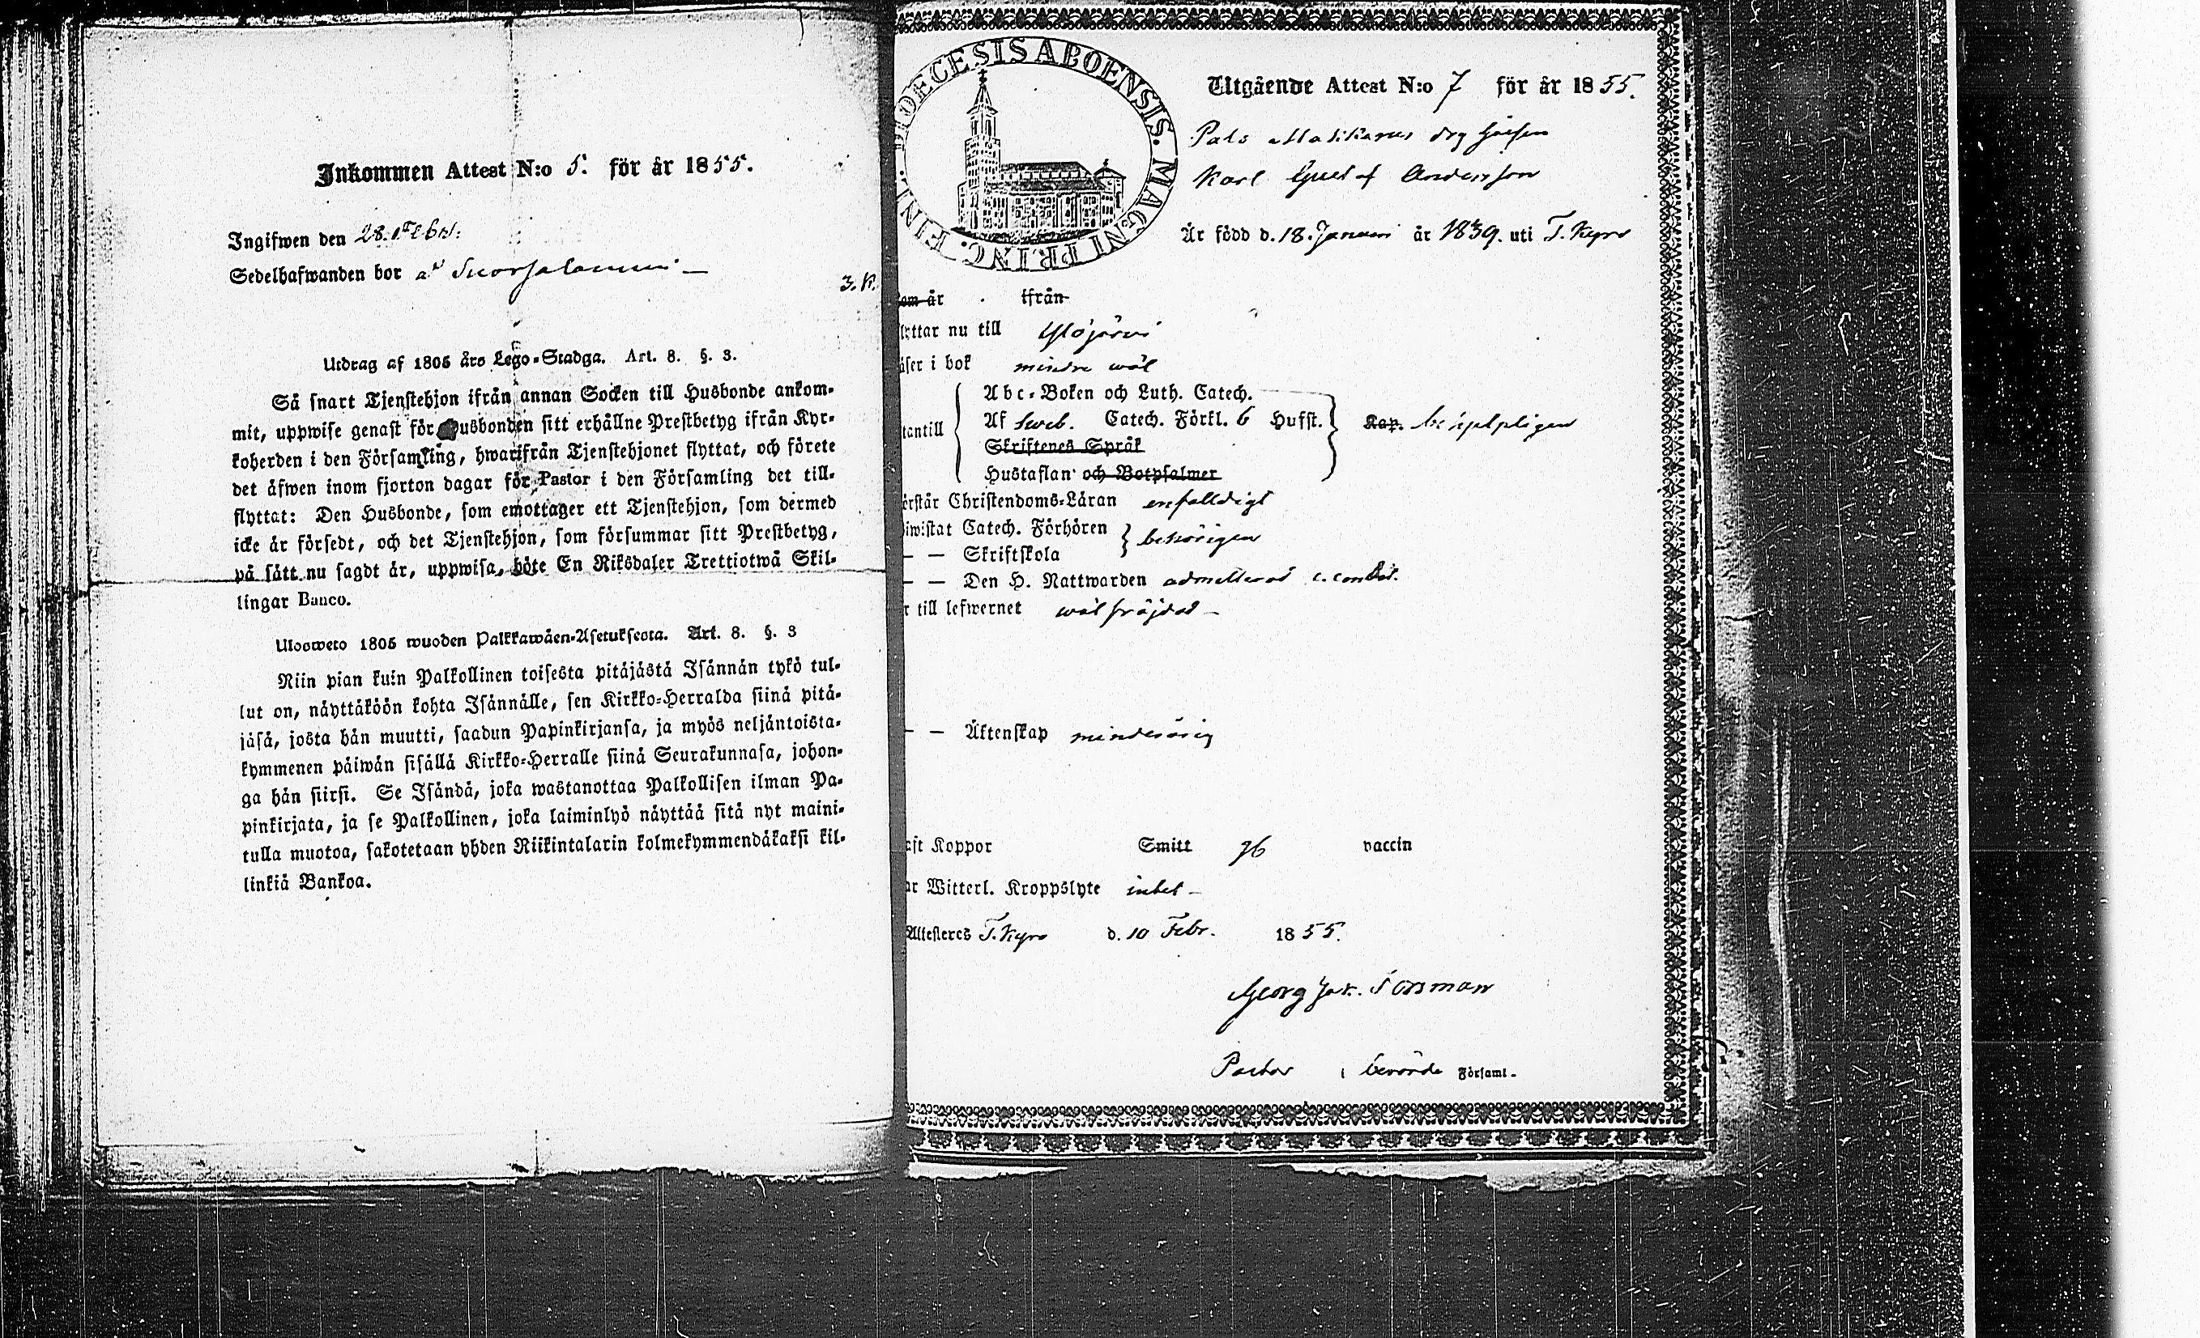 Inkommen Attest N:o 5. för år 1855.
Ingifwen den 28. Febr.
Sedelhafwanden bor
3. K.
Utdrag af 1805 års Lego-Stadga. Art. 8. §. 3.
Så snart Tjenstehjon ifrån annan Socken till Husbonde ankom-
mit, uppwise genast för Husbonden sitt erhållne Prestbetyg ifrån Kyr-
koherden i den Församling, hwarifrån Tjenstehjonet flyttat, och förete
det äfwen inom fjorton dagar för Pastor i den Församling det till-
flyttat: Den Husbonde, som emottager ett Tjenstehjon, som dermed
icke är försedt, och det Tjenstehjon, som försummar sitt Prestbetyg,
på sätt nu sagdt är, uppwisa, böte En Riksdaler Trettiotwå Skil-
lingar Banco.
Ulosweto 1805 wuoden Palkkawäen-Asetuksesta. Art. 8. §. 3
Niin pian kuin Palkollinen toisesta pitäjästä Isännän tykö tul-
lut on, näyttäköön kohta Isännälle, sen Kirkko-Herralda siinä pitä-
jäsä, josta hän muutti, saadun Papinkirjansa, ja myös neljäntoista-
kymmenen päiwän sisällä Kirkko-Herralle siinä Seurakunnasa, johon-
ga hän siirsi. Se Isändä, joka wastanottaa Palkollisen ilman Pa-
pinkirjata, ja se Palkollinen, joka laiminlyö näyttää sitä nyt maini-
tulla muotoa, sakotetaan yhden Riikintalarin kolmekymmendäkaksi kil-
linkiä Bankoa.
DIOECESIS ABOENSIS. MAGNI PRINC. FINL.
Utgående Attest N:o 7 för år 1855.
Karl Gustaf Andersson
Är född d. 18. Januari år 1839. uti T. Kyro
kom år ifrån
lyttar nu till Ylöjärvi
äser i bok mindre wäl
Abc-Boken och Luth. Catech.
tantill Af Sweb. Catech. Förkl. 6 Hufst. Kap. behjelpligen
Skriftenes Språk
Hustaflan och Botpsalmer
örstår Christendoms-Läran enfaldigt
iwistat Catech. Förhören behörigen
— — Skriftskola
— — Den H. Nattwarden admitterad
r till lefwernet wäl fräjdad —
— — Äktenskap minderårig
aft Koppor Smitt vaccin
ar Witterl. Kroppslyte intet —
Attesteres T. Kyro d. 10 Febr. 1855.
Georg Jak. Forsman
Pastor i berörde Församl.